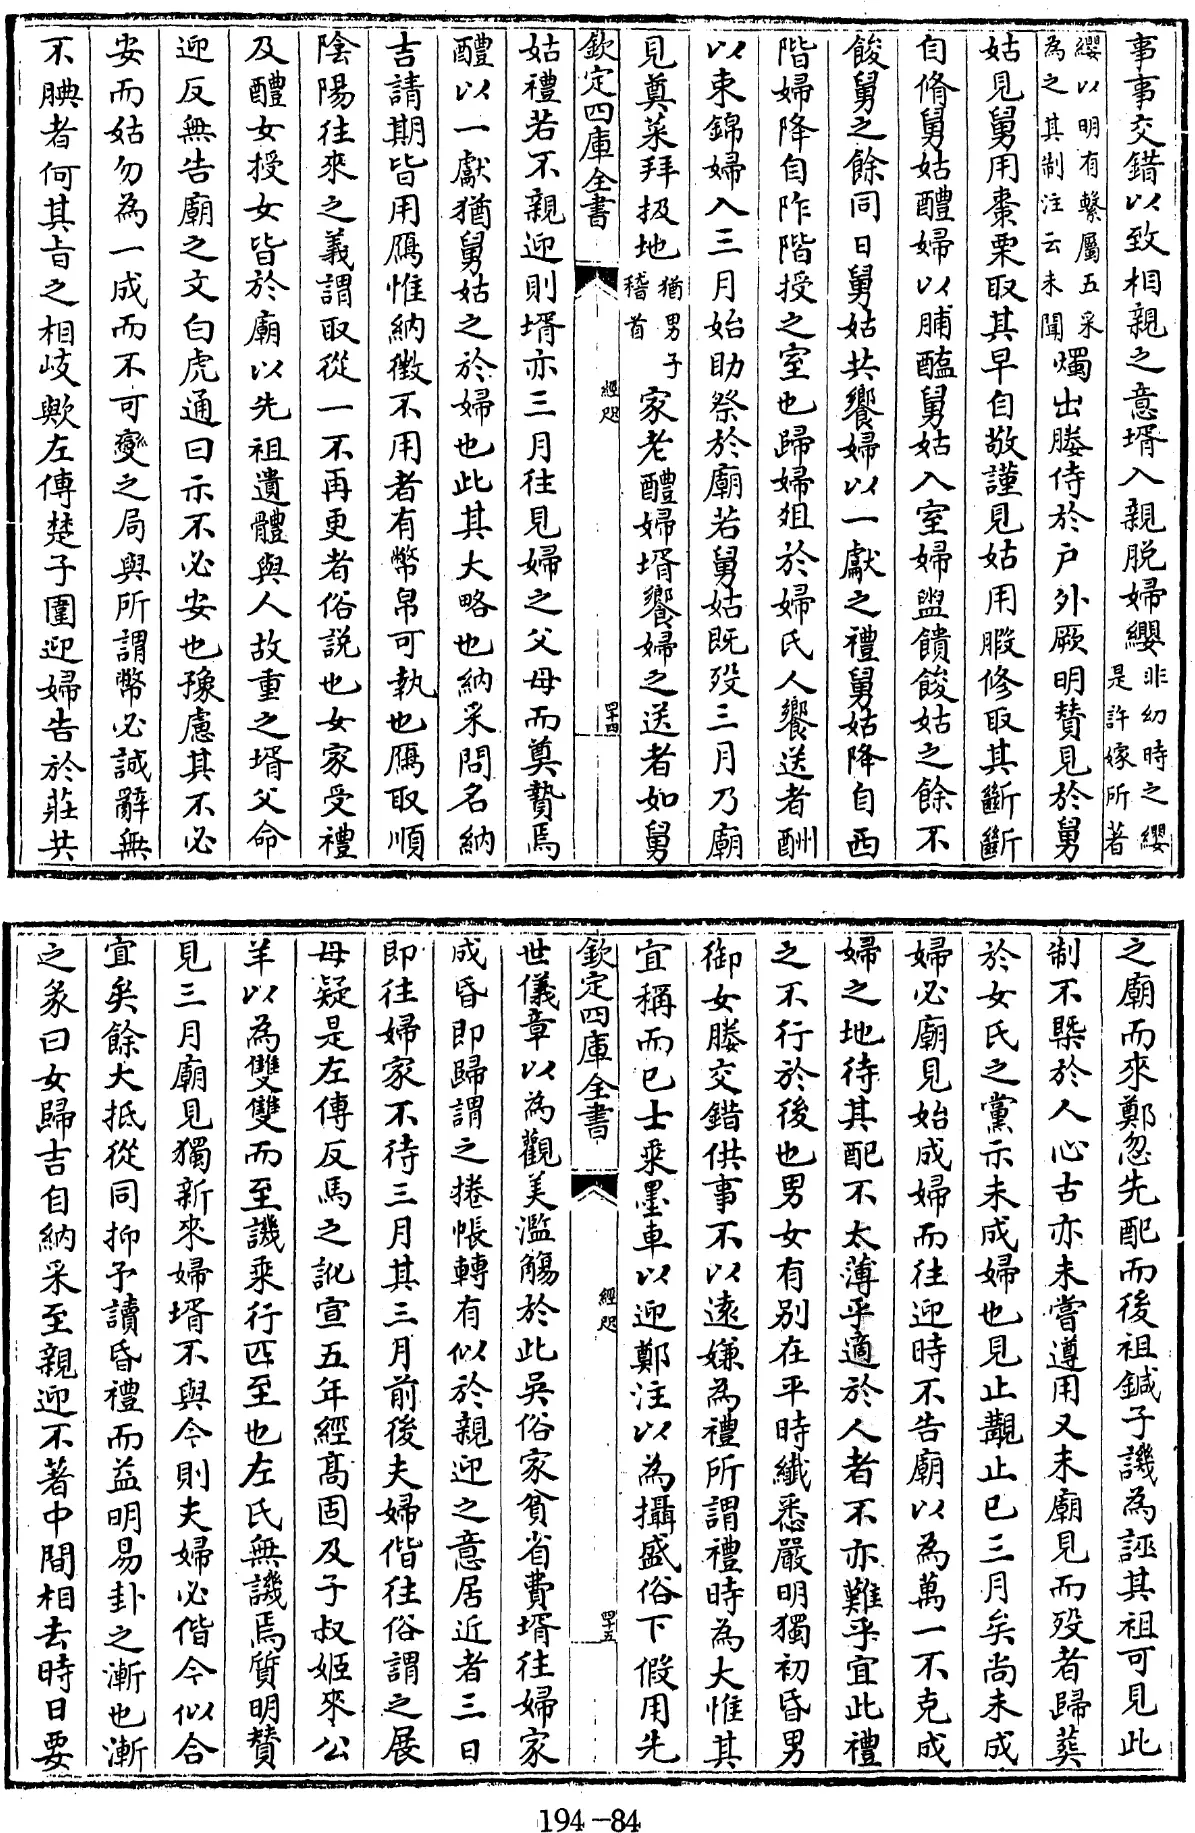 事事交錯以致相親之意壻入親脱婦纓非幼時之纓是許嫁所著
纓以明有繫屬五采為之其制注云未聞燭出媵侍於户外厥明賛見於舅
姑見舅用棗栗取其早自敬謹見姑用腶修取其斷斷
自脩舅姑醴婦以脯醢舅姑入室婦盥饋餕姑之餘不
餕舅之餘同日舅姑共饗婦以一獻之禮舅姑降自西
階婦降自阼階授之室也歸婦俎於婦氏人饗送者酬
以束錦婦入三月始助祭於廟若舅姑既殁三月乃廟
見奠菜拜扱地猶男子稽首家老醴婦壻饗婦之送者如舅
欽定四庫全書 經咫 四十四
姑禮若不親迎則壻亦三月往見婦之父母而奠贄焉
醴以一獻猶舅姑之於婦也此其大略也納采問名納
吉請期皆用鴈惟納徴不用者有幣帛可執也鴈取順
陰陽往來之義謂取從一不再更者俗説也女家受禮
及醴女授女皆於廟以先祖遺體與人故重之壻父命
迎反無告廟之文白虎通曰示不必安也豫慮其不必
安而姑勿為一成而不可變之局與所謂幣必誠辭無
不腆者何其㫖之相歧歟左傳楚子圍迎婦告於莊共
之廟而來鄭忽先配而後祖鍼子譏為誣其祖可見此
制不槩於人心古亦未嘗遵用又未廟見而殁者歸葬
於女氏之黨示未成婦也見止覯止已三月矣尚未成
婦必廟見始成婦而往迎時不告廟以為萬一不克成
婦之地待其配不太薄乎適於人者不亦難乎宜此禮
之不行於後也男女有别在平時纎悉嚴明獨初昏男
御女媵交錯供事不以遠嫌為禮所謂禮時為大惟其
宜稱而已士乘墨車以迎鄭注以為攝盛俗下假用先
欽定四庫全書 經咫 四十五
世儀章以為觀美濫觴於此吴俗家貧省費壻往婦家
成昏即歸謂之捲帳轉有似於親迎之意居近者三日
即往婦家不待三月其三月前後夫婦偕往俗謂之展
母疑是左傳反馬之訛宣五年經髙固及子叔姬來公
羊以為雙雙而至譏乘行匹至也左氏無譏焉質明賛
見三月廟見獨新來婦壻不與今則夫婦必偕今似合
宜矣餘大抵從同抑予讀昏禮而益明易卦之漸也漸
之彖曰女歸吉自納采至親迎不著中間相去時日要
194-84